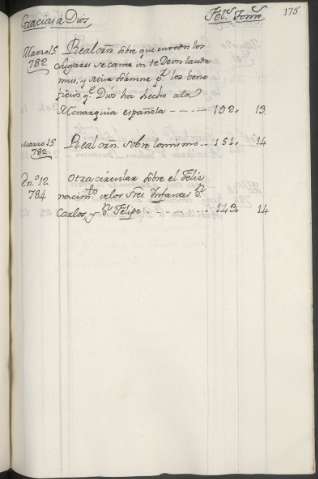 Gracias a Dios. Fols. Tomos. 175
Marzo 15 Real orn. sobre que en todos los
782 lugares se cante un te Deum lauda
mus, y misa solemne pr. los bene
ficios qe. Dios ha hecho a la
Monarquia española 132. 13
Marzo 15 Real orn. sobre lo mismo 151. 14
782
En.o 12 Otra circular sobre el feliz
784 nacimto. de los Sres. Infantes Dn.
Carlos, y Dn. Felipe 143. 14